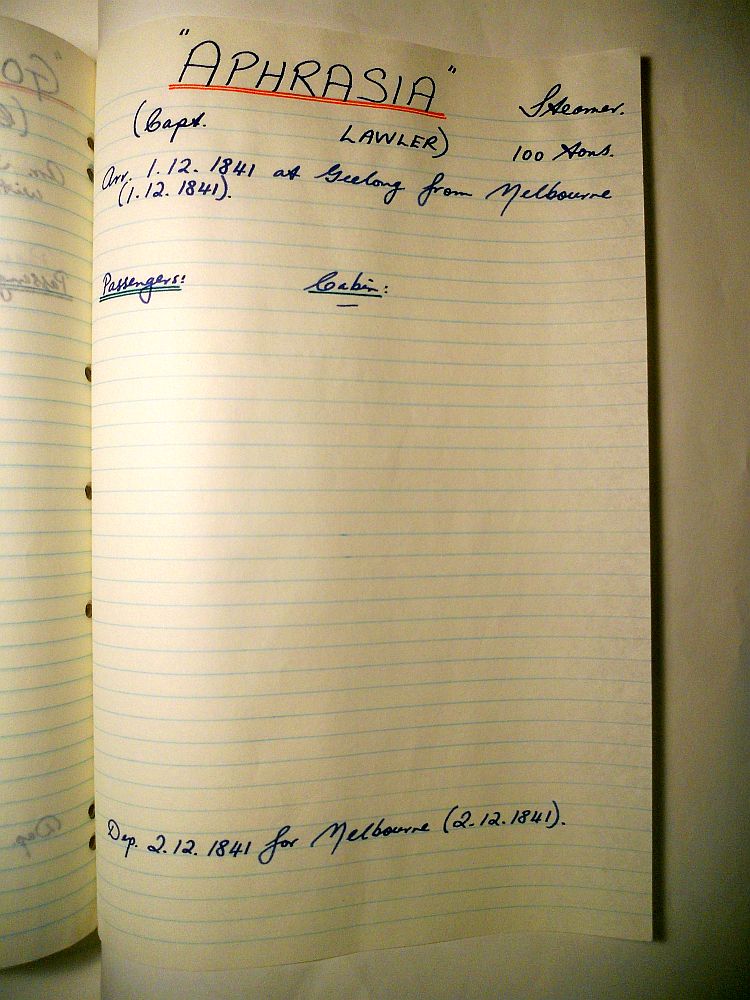 "APHRASIA" Steamer.
(Capt. LAWLER) 100 tons.
Arr. 1.12.1841 at Geelong from Melbourne
(1.12.1841).
Passengers: Cabin:
Dep. 2.12.1841 for Melbourne (2.12.1841).